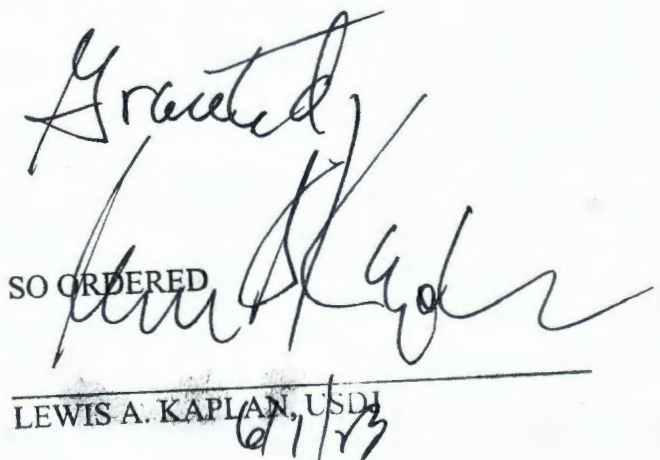 Granted
SO ORDERED
LEWIS A. KAPLAN, USDJ
6/1/23